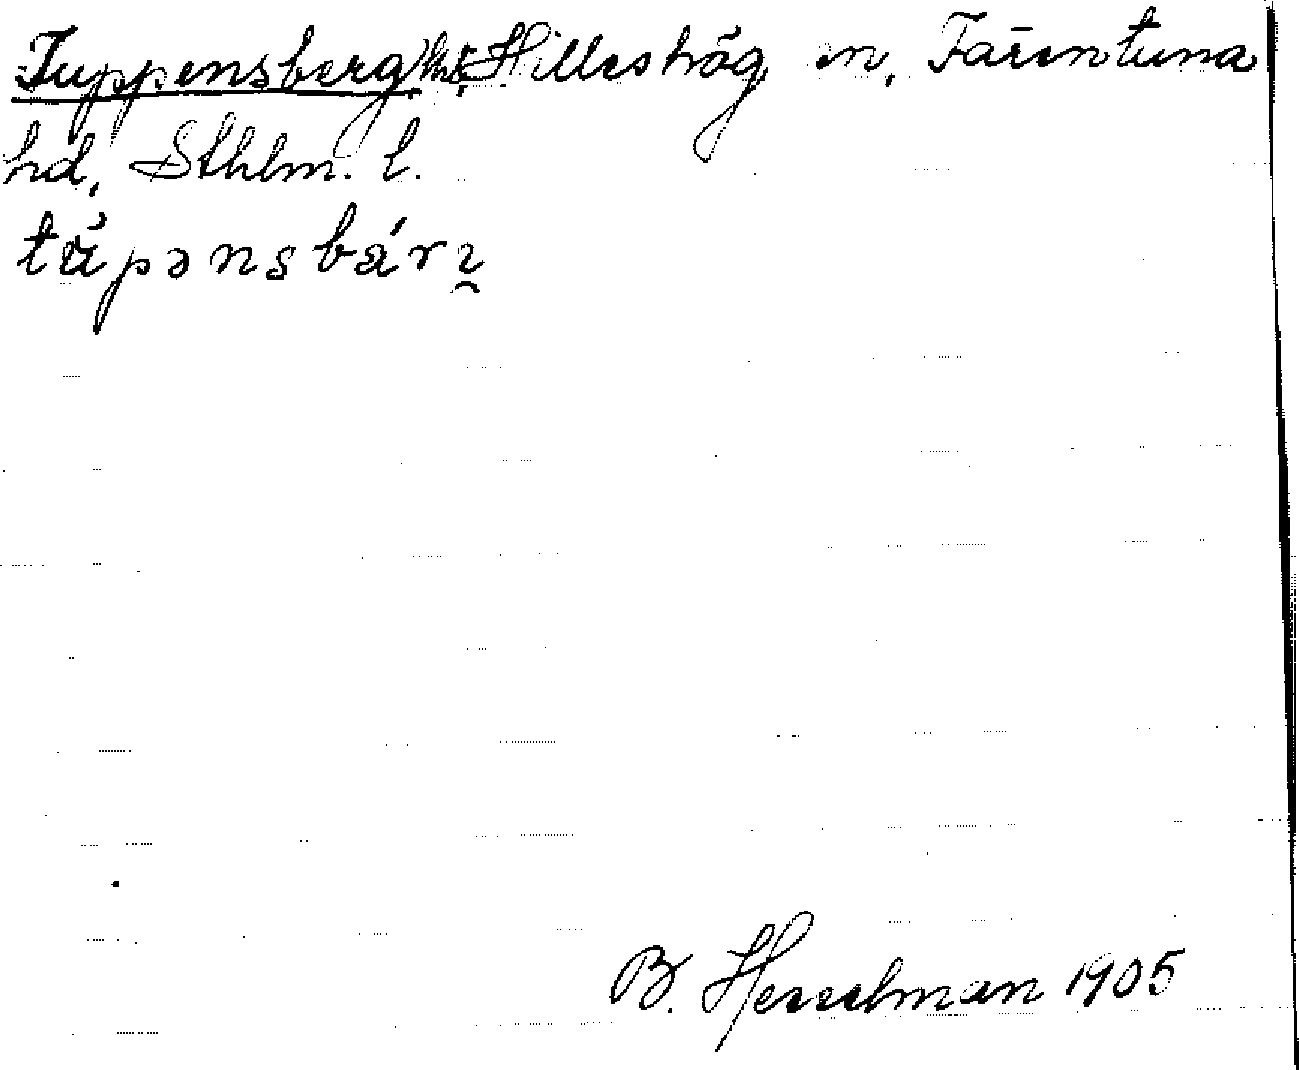 Tuppensberg, Hilleshög sn, Färentuna
hd, Sthlm. l.
B. Hesselman 1905